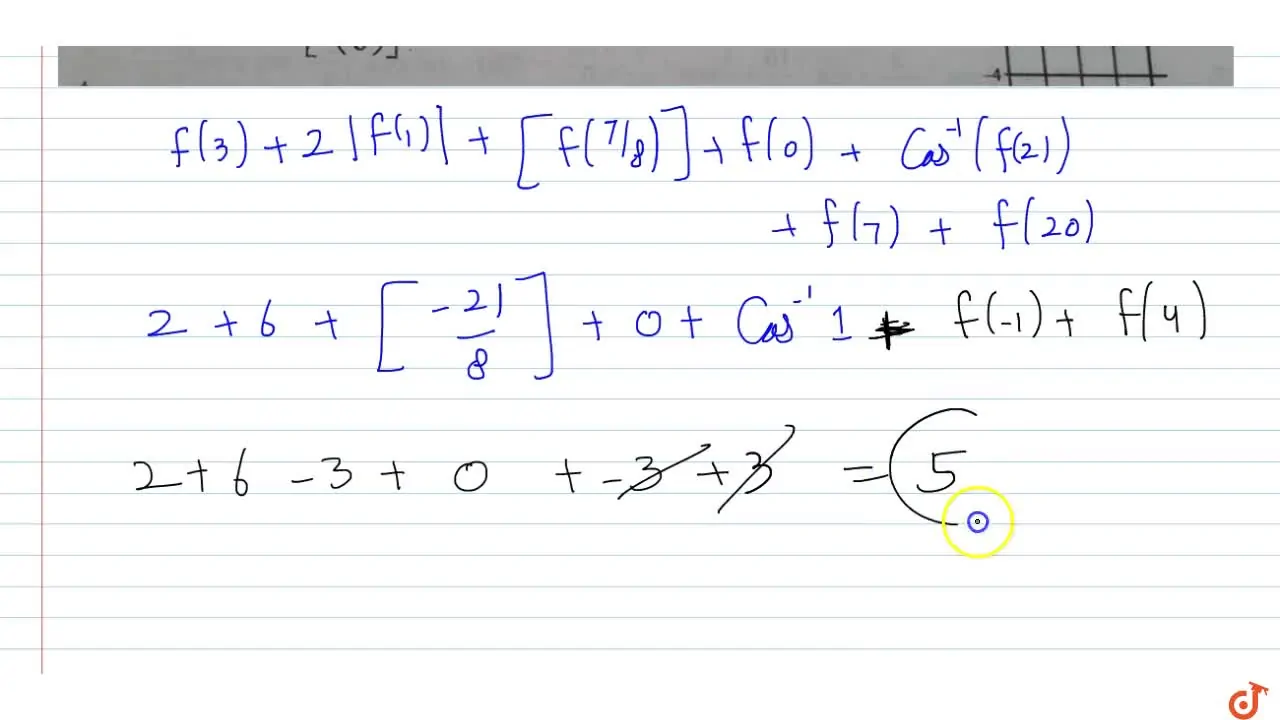 -4
f(3) + 2 |f(1)| + [f(7/8)] + f(0) + Cos⁻¹(f(2))
+ f(7) + f(20)
2 + 6 + [-21/8] + 0 + Cos⁻¹ 1 + f(-1) + f(4)
2 + 6 - 3 + 0 + -3 + 3 = 5